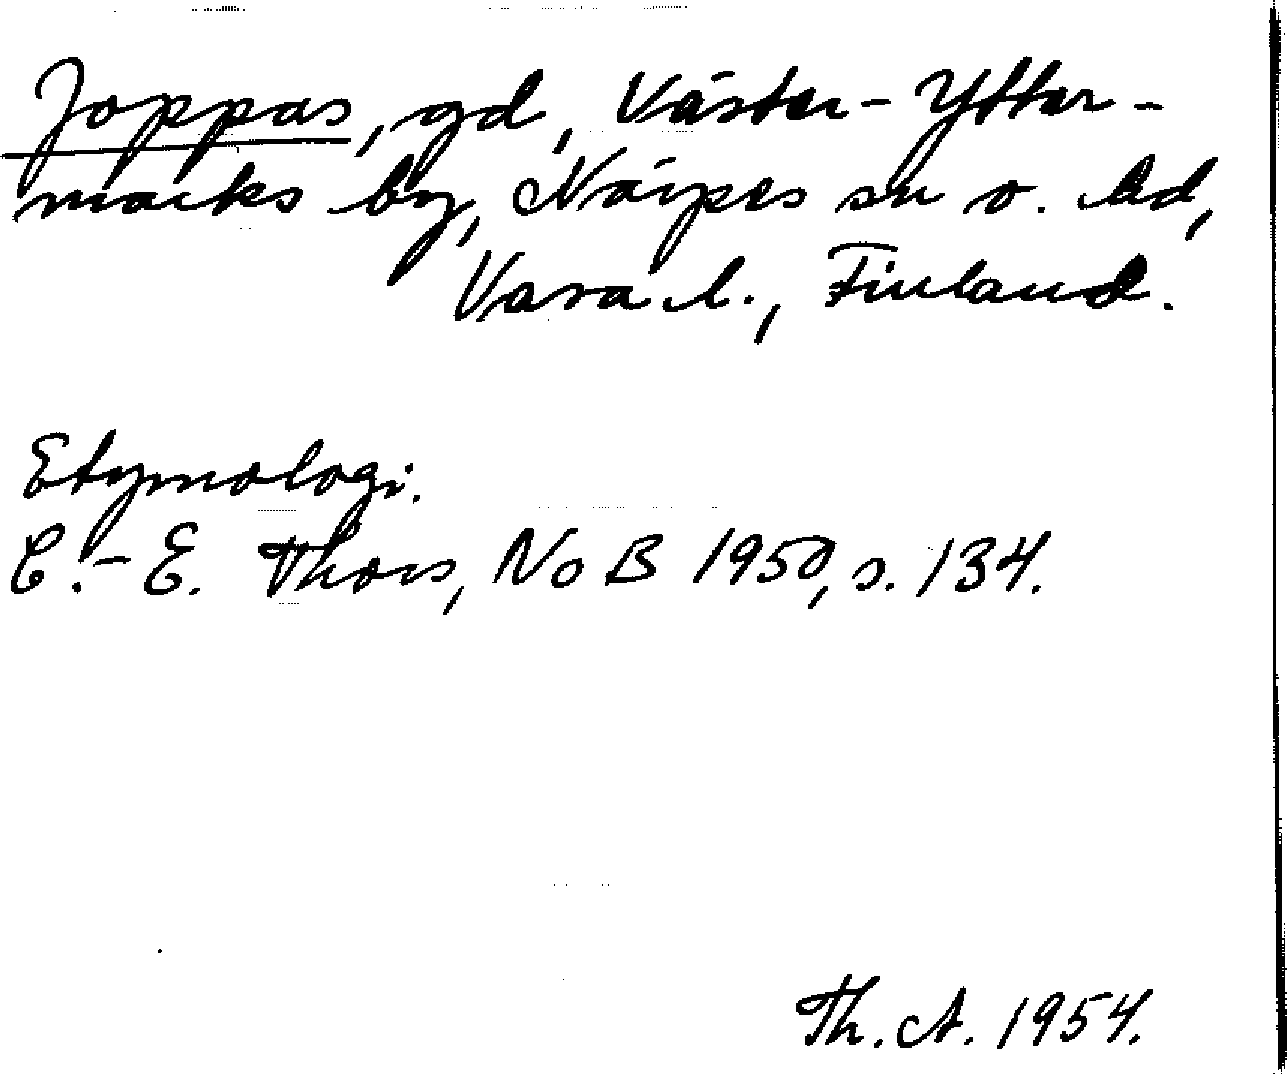 Joppas, gd, Väster-Ytter-
marks by, Närpes sn o. hd,
Vasa l., Finland.
Etymologi.
C.-E. Thors, NoB 1950, s. 134.
Th. A. 1954.